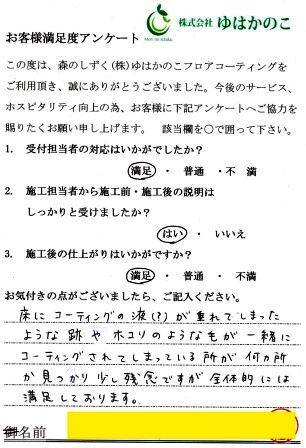 株式会社 ゆはかのこ
Mori no shizuku
お客様満足度アンケート
この度は、森のしずく(株)ゆはかのこフロアコーティングを
ご利用頂き、誠にありがとうございました。今後のサービス、
ホスピタリティ向上の為、お客様に下記アンケートへご協力を
賜りたくお願い申し上げます。 該当欄を○で囲って下さい。
1. 受付担当者の対応はいかがでしたか？
満足 ・ 普通 ・不 満
2. 施工担当者から施工前・施工後の説明は
しっかりと受けましたか？
はい ・ いいえ
3. 施工後の仕上がりはいかがですか？
満足 ・ 普通 ・ 不満
お気付きの点がございましたら、ご記入ください。
床に コーティングの 液(?)が 垂れてしまった
ような 跡や ホコリのような毛が 一緒に
コーティングされてしまっている所が 何カ所
か 見つかり 少し残念ですが 全体的には
満足しております。
御名前